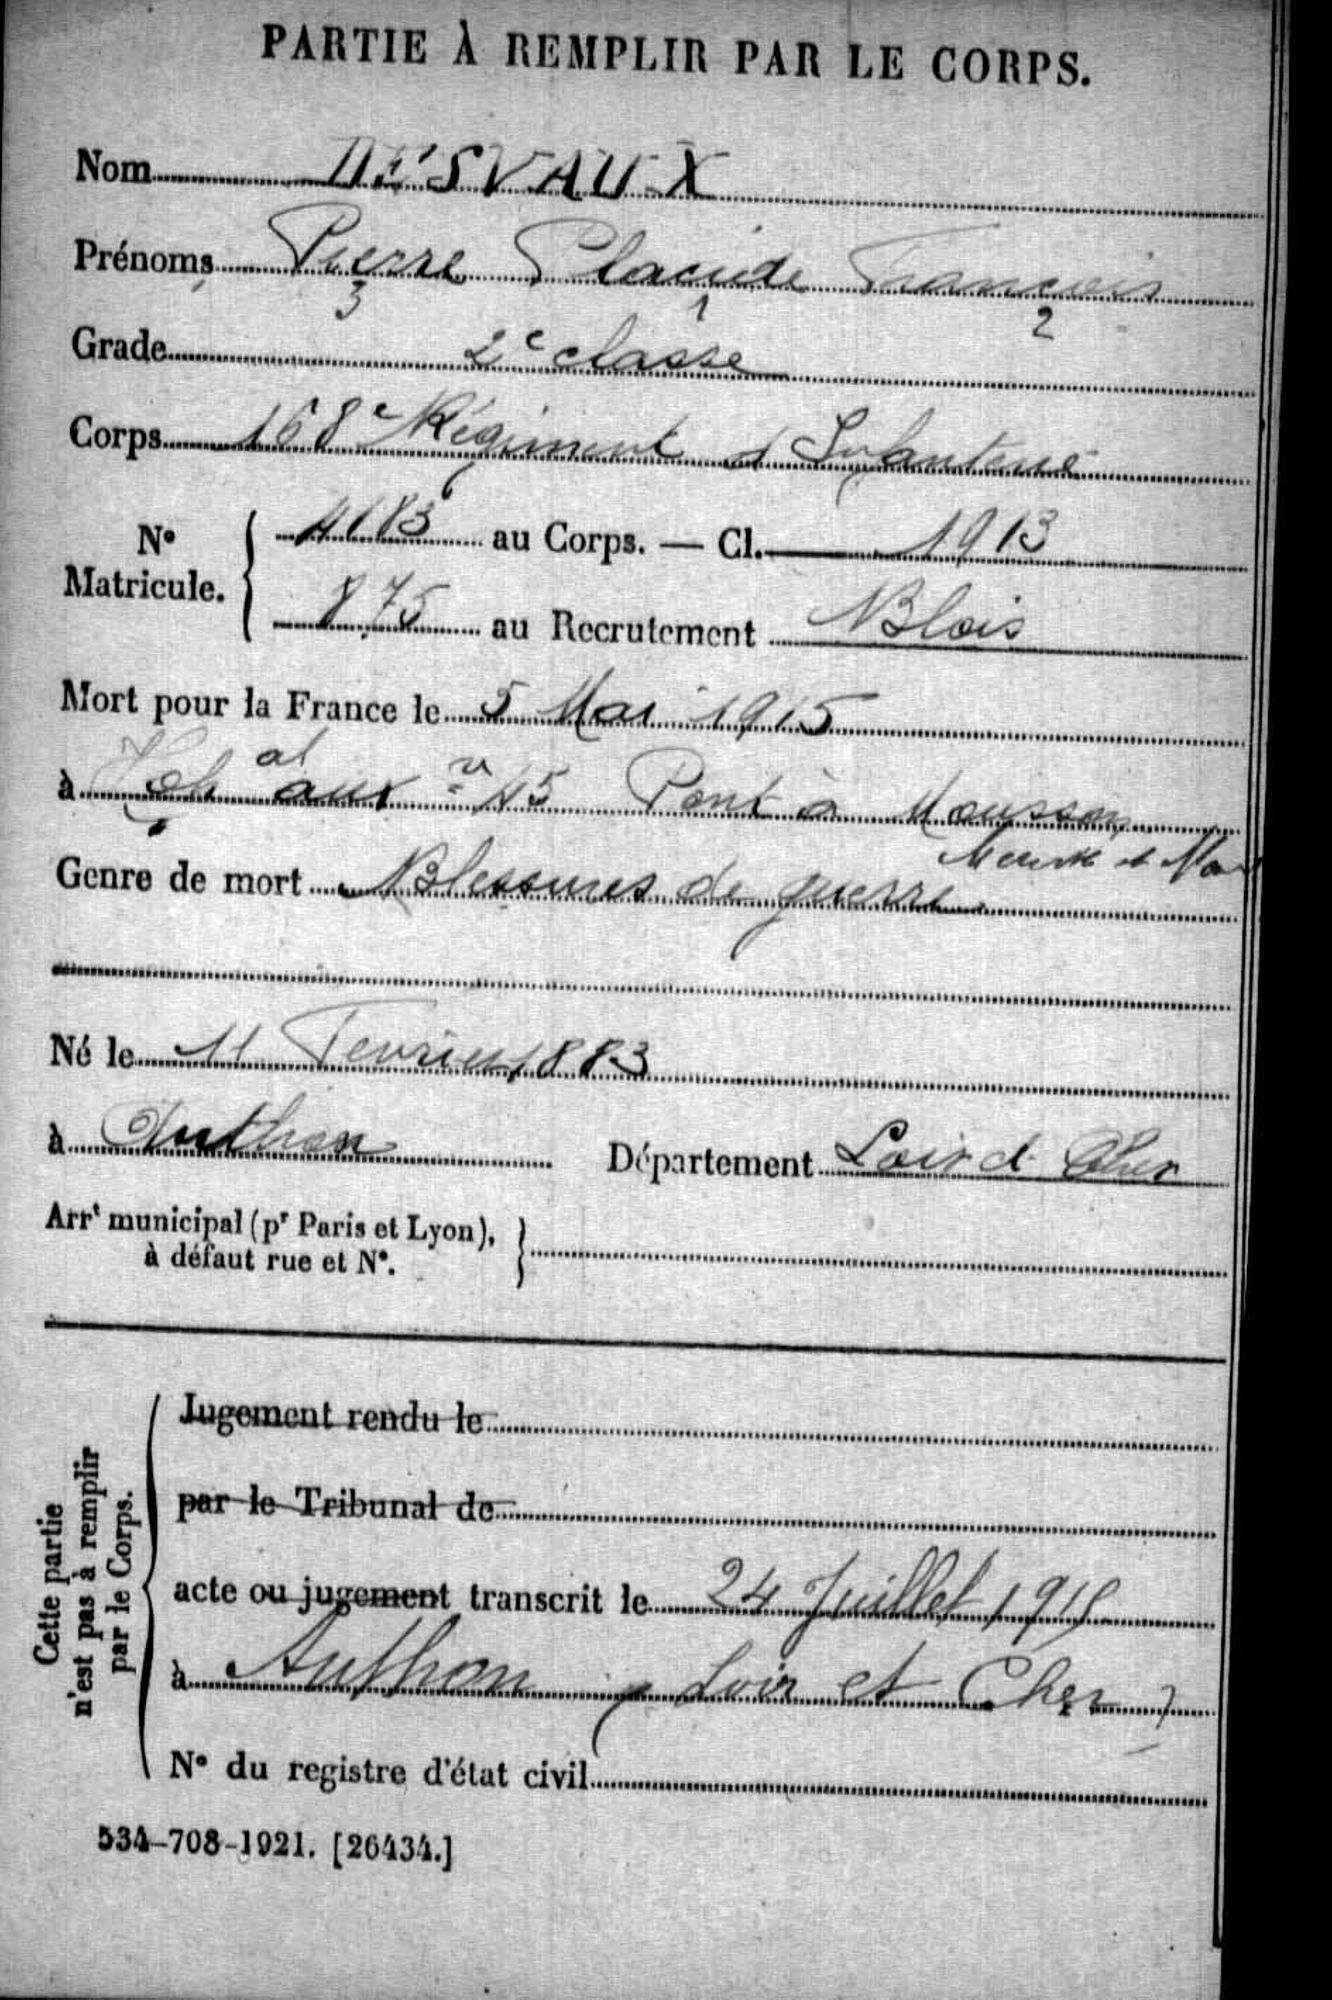 PARTIE À REMPLIR PAR LE CORPS.
Nom DESVAUX
Prénoms Pierre Placide François
3 1 2
Grade 2e classe
Corps 168e Régiment d'Infanterie
No Matricule. 4183 au Corps. — Cl. 1913
875 au Recrutement Blois
Mort pour la France le 5 Mai 1915
à Pont à Mousson
Meurthe et
Genre de mort Blessures de guerre
Né le 11 Fevrier 1883
à Authon Département Loir et Cher
Arrt municipal (pr Paris et Lyon),
à défaut rue et No.
Cette partie
n'est pas à remplir
par le Corps.
Jugement rendu le
par le Tribunal de
acte ou jugement transcrit le 24 Juillet 1915
à Authon (Loir et Cher)
No du registre d'état civil
534-708-1921. [26434.]